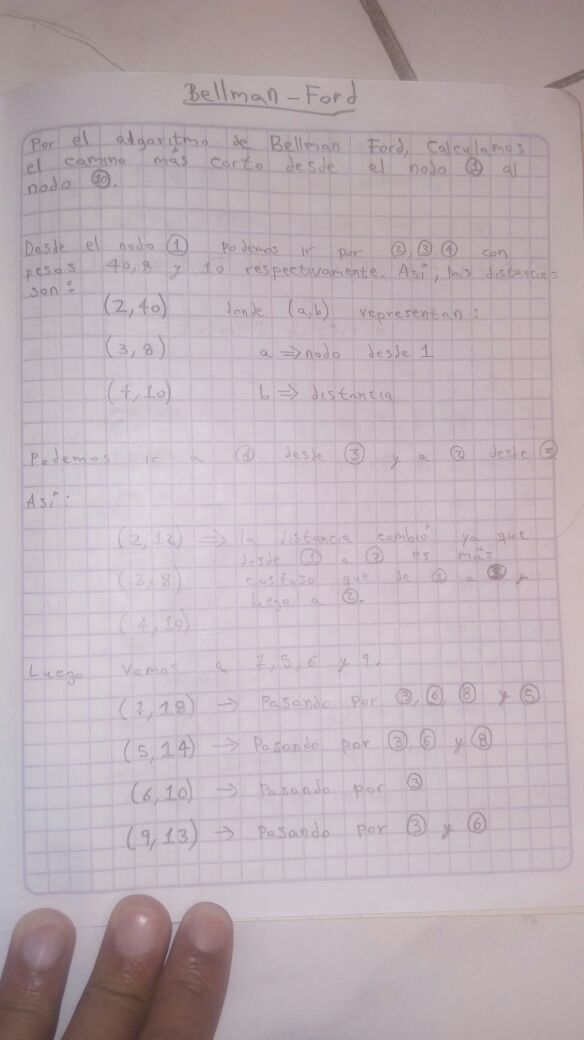 Bellman - Ford
Por el algoritmo de Bellman Ford, Calculamos
el camino más corto desde el nodo ① al
nodo ⑩.
Desde el nodo ① podemos ir por ②, ③, ④ con
pesos 40, 8 y 10 respectivamente. Así, las distancias
son:
(2, 40) donde (a,b) representan:
(3, 8) a ⇒ nodo desde 1
(4, 10) b ⇒ distancia
Podemos ir a ④ desde ③ y a ② desde ③
Así:
(2, 12) ⇒ la distancia cambió ya que
desde ① a ② es más
(3, 8) costoso que de ① a y
luego a ②.
(4, 10)
Luego vamos a 7, 5, 6 y 9.
(7, 18) → Pasando por ③, ⑥, ⑧ y ⑤
(5, 14) → Pasando por ③, ⑥ y ⑧
(6, 10) → Pasando por ③
(9, 13) → Pasando por ③ y ⑥